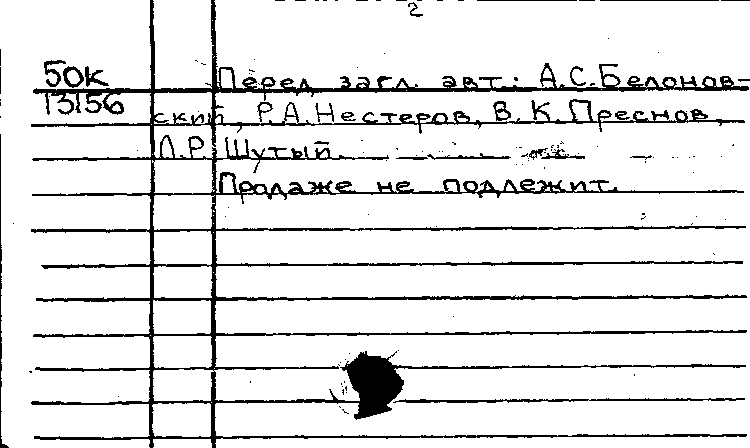 2
50К
13156
Перед загл. авт.: А.С.Белонов-
ский, Р.А.Нестеров, В.К.Преснов,
Л.Р. Шутый.
Продаже не подлежит.